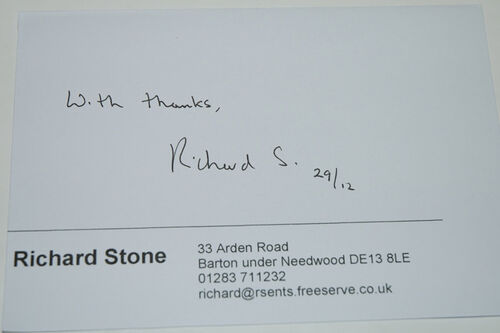 With thanks,
Richard S. 29/12
Richard Stone
33 Arden Road
Barton under Needwood DE13 8LE
01283 711232
richard@rsents.freeserve.co.uk